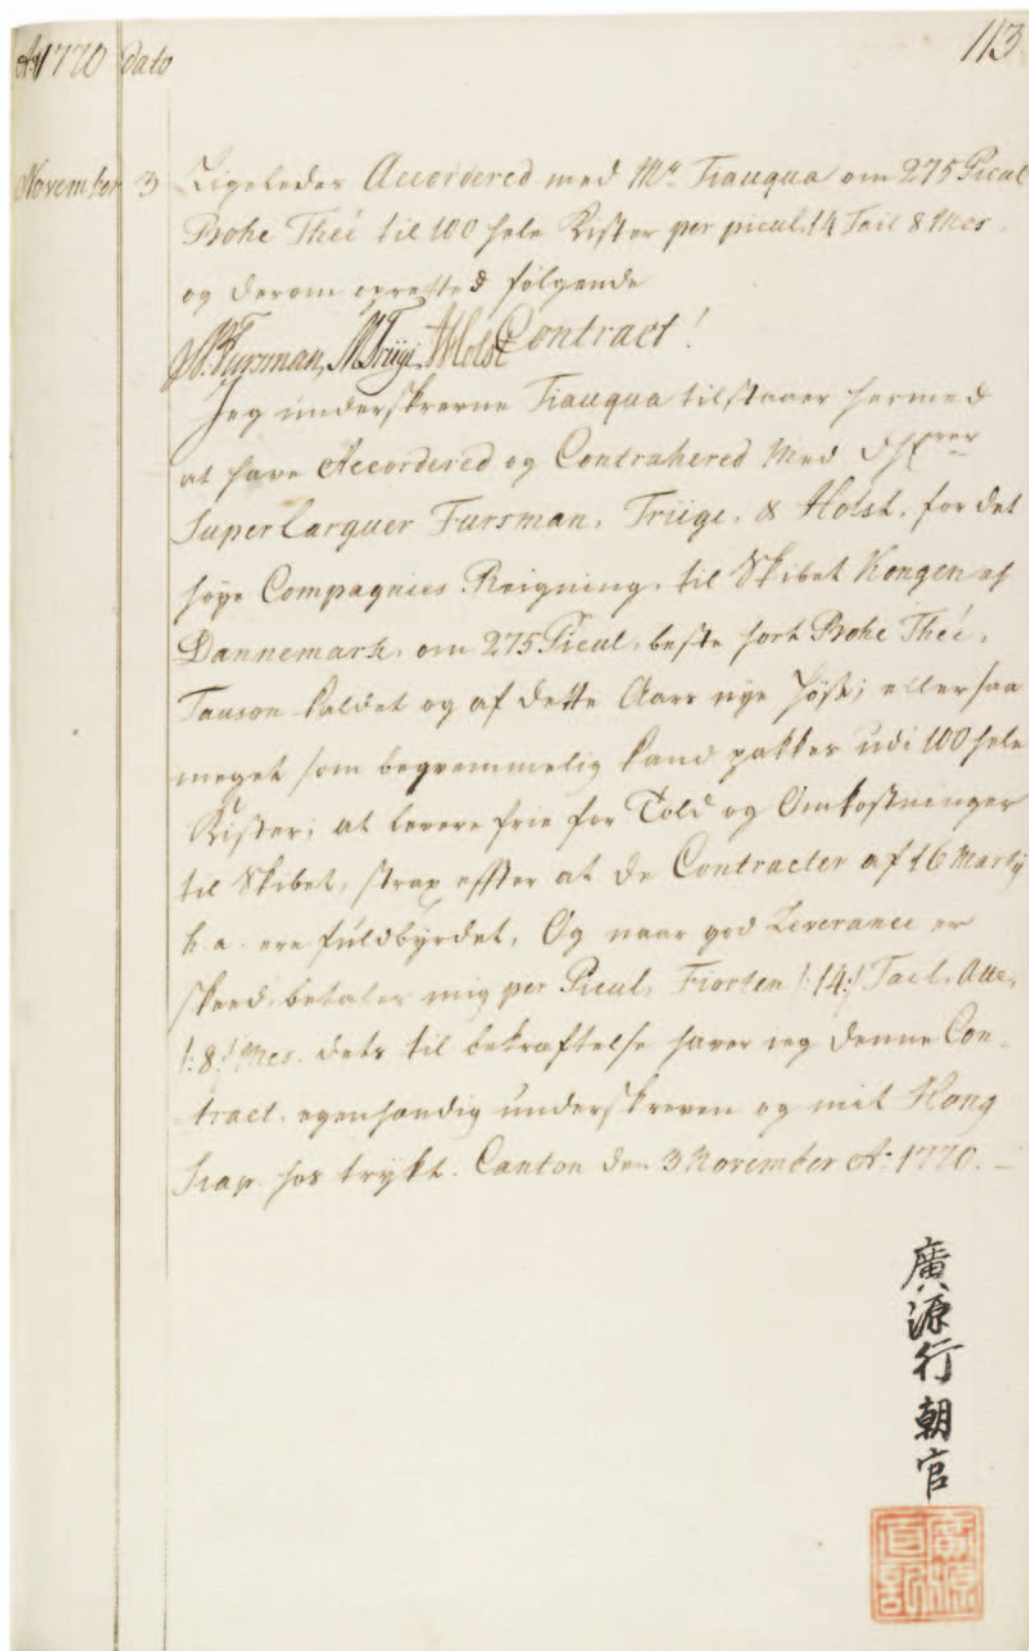 Ao 1770 dato 113
November 3 Ligeledes Accordered med Mr Tiauqua om 275 Picul
Bohe Theé til 100 hele Kister per picul 14 Tail 8 Mes
og derom opretted følgende
P: Fursman, MTriigi, AHolst Contract!
Jeg underskrevne Tiauqua tilstaaer hermed
at have Accordered og Contrahered Med
Super Carguer Fursman, Trügi, & Holst, for det
høye Compagnies Reigning, til Skibet Kongen af
Dannemark, om 275 Picul, beste sort Bohe Theé,
Tauson kaldet og af dette Aars nye Høst; eller saa
meget som beqvemmelig kand pakkes udi 100 hele
Kister; at levere frie for Told og Omkostninger
til Skibet, strax effter at de Contracter af 16 Martÿ
h. a. ere fuldbÿrdet, Og naar god Leverance er
skeed, betales mig per Picul, Fiorten /:14:/ Tael, Atte,
/:8:/ Mes. dets til bekræftelse haver ieg denne Con-
tract, egenhændig underskreven og mit Hong
Siap hos trykt. Canton den 3 November Ao 1770. -
廣源行朝官